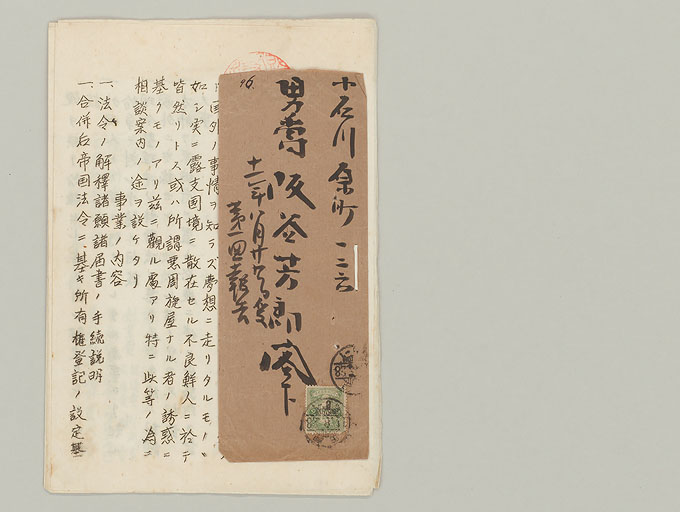 小石川原町一二六
男爵阪谷芳郎閣下
十一年八月廿九日受
第一回報告
96.
国外ノ事情ヲ知ラズ夢想ニ走リタルモノヽ
如シ実ニ露支国境ニ散在セル不良鮮人ニ於テ
皆然リトス或ハ所謂悪周旋屋ナル者ノ誘惑ニ
基クモノアリ茲ニ観ル処アリ特ニ此等ノ為ニ
相談案内ノ途ヲ設ケタリ
事業ノ内容
一、法令ノ解釋諸願諸届書ノ手続説明
一、合併后帝国法令ニ基キ所有権登記ノ設定基